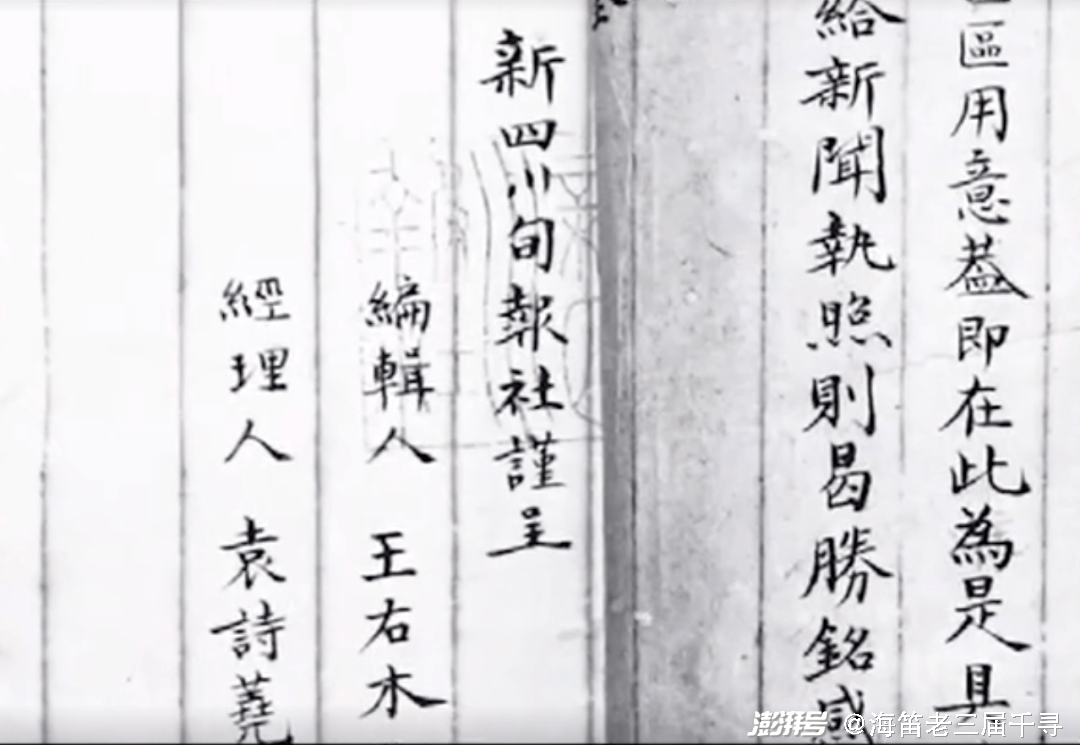 區用意蓋即在此為是具
給新聞執照則曷勝銘感
新四川旬報社謹呈
編輯人 王右木
經理人 袁詩蕘
澎湃号 @海笛老三届千寻